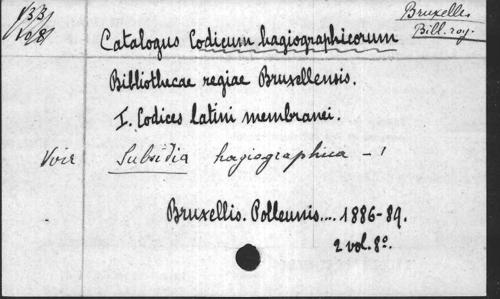 Bruxelles.
Bibl. roy.
Catalogus Codicum hagiographicorum
Bibliothecae regiae Bruxellensis.
I. Codices latini membranei.
Voir Subsidia hagiographica - 1
Bruxellis. Polleunis.... 1886-89.
2 vol. 8º.